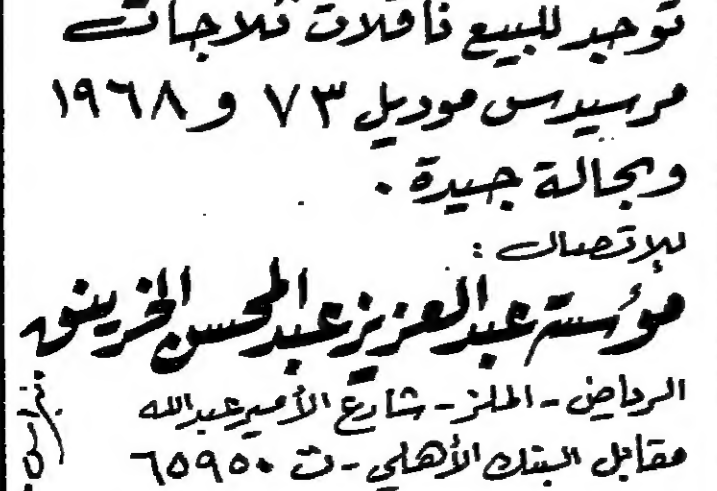 توجد للبيع ناقلات ثلاجات
مرسيدس موديل ٧٣ و ١٩٦٨
وبحالة جيدة .
للإتصال :
مؤسسة عبدالعزيز عبدالمحسن الخرينق
الرياض - الملز - شارع الأمير عبدالله
مقابل البنك الأهلي - ت ٦٥٩٥٠
نبراس